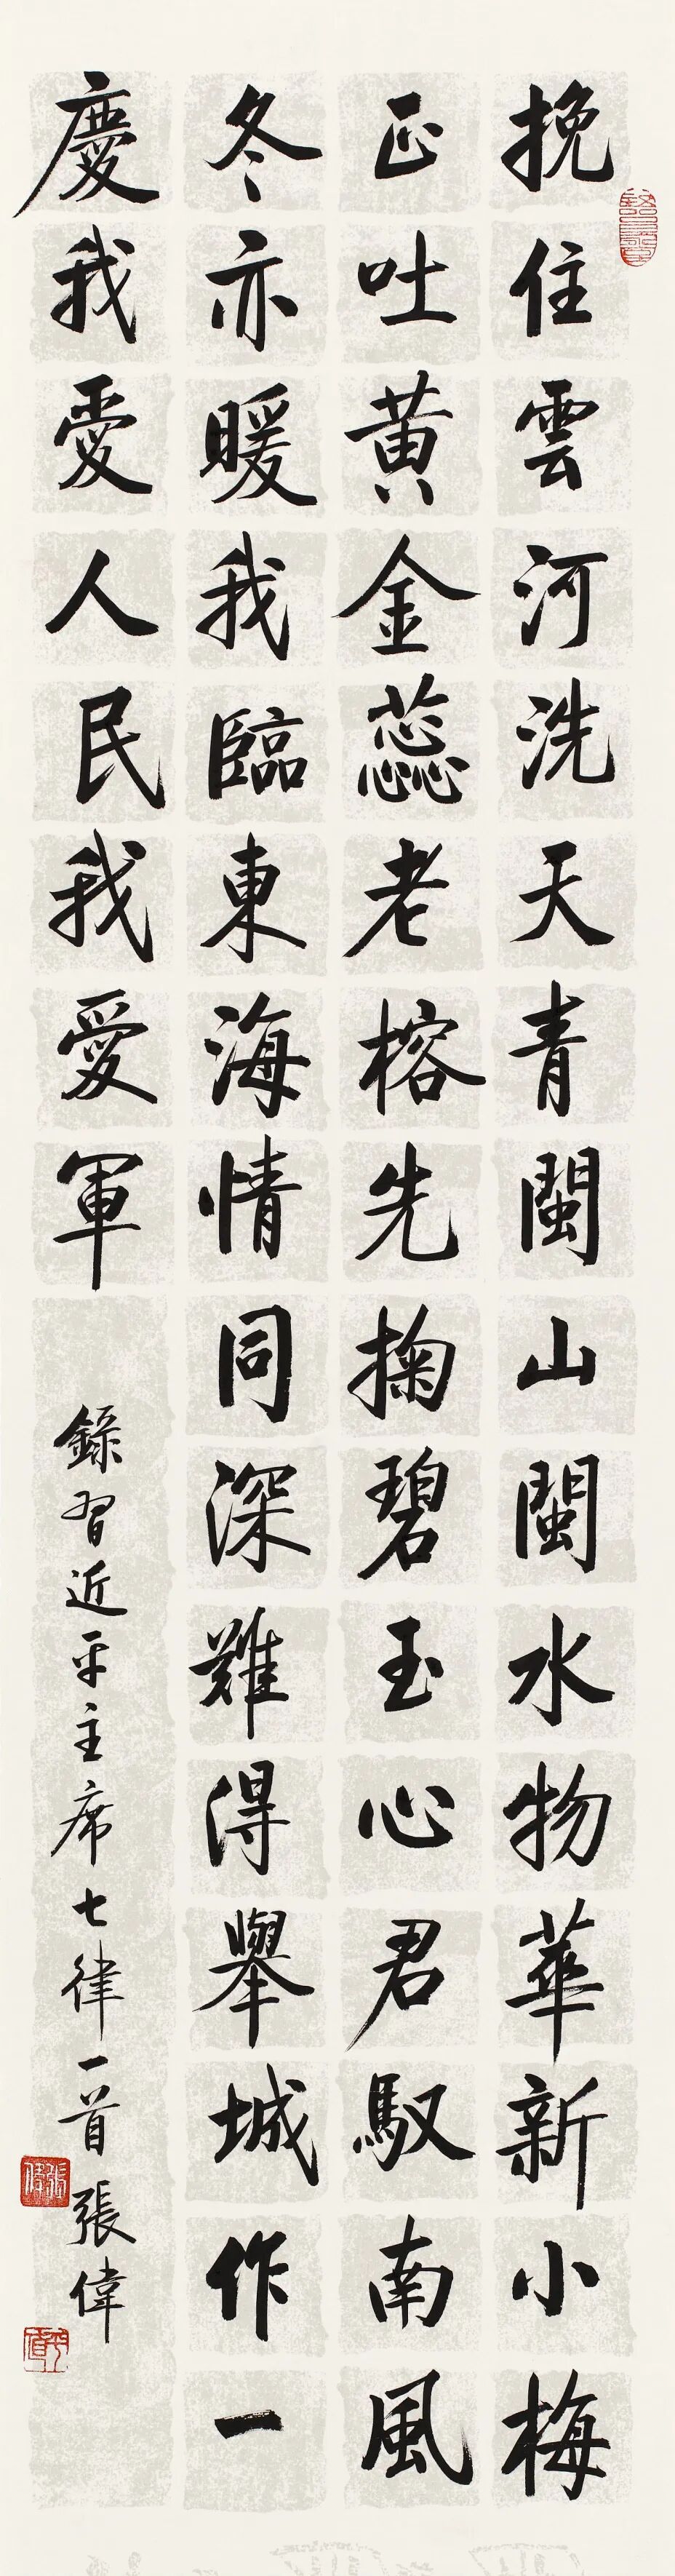 挽住雲河洗天青閩山閩水物華新小梅
正吐黄金蕊老榕先掬碧玉心君馭南風
冬亦暖我臨東海情同深難得舉城作一
慶我愛人民我愛軍
錄習近平主席七律一首張偉
張偉